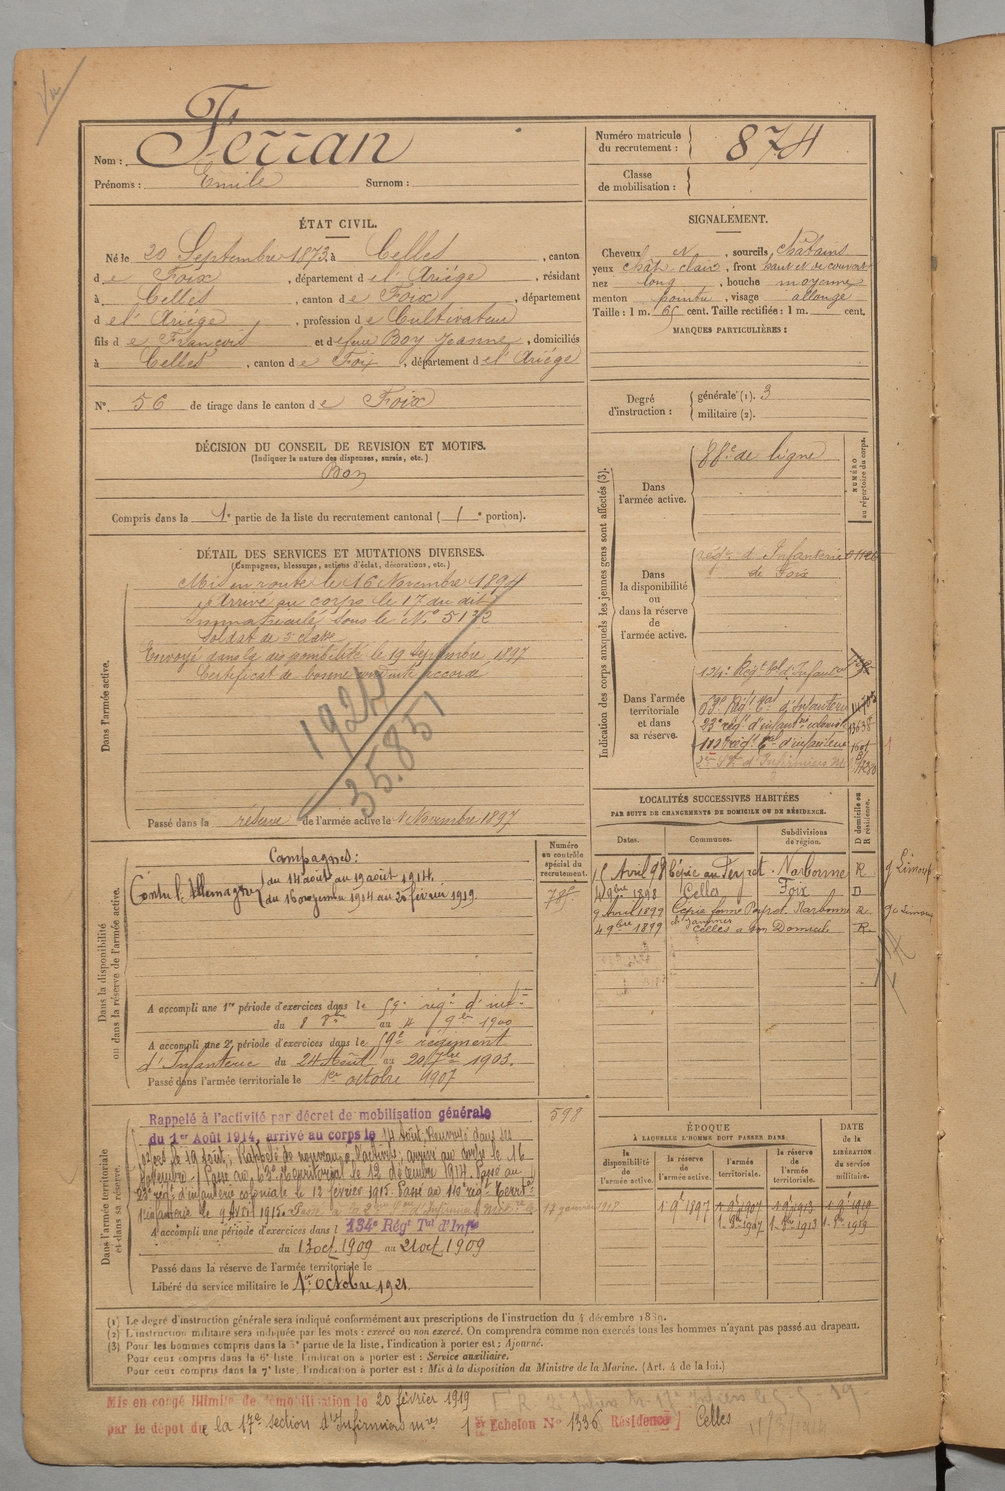 Nom : Ferran
Prénoms : Emile Surnom :
Numéro matricule du recrutement : 874
Classe de mobilisation :
ÉTAT CIVIL.
Né le 20 Septembre 1873, à Celles, canton
de Foix, département de l'Ariége, résidant
à Celles, canton de Foix, département
de l'Ariége, profession de Cultivateur
fils de François et de feue Boy Jeanne, domiciliés
à Celles, canton de Foix, département de l'Ariége
N° 56 de tirage dans le canton de Foix
SIGNALEMENT.
Cheveux N, sourcils châtains
yeux chât. clairs, front haut et découvert
nez long, bouche moyenne
menton pointu, visage allongé
Taille : 1 m. 65 cent. Taille rectifiée : 1 m. cent.
MARQUES PARTICULIÈRES :
Degré d'instruction : générale (1). 3
militaire (2).
DÉCISION DU CONSEIL DE REVISION ET MOTIFS.
(Indiquer la nature des dispenses, sursis, etc.)
Bon
Compris dans la 1e partie de la liste du recrutement cantonal ( 1e portion).
DÉTAIL DES SERVICES ET MUTATIONS DIVERSES.
(Campagnes, blessures, actions d'éclat, décorations, etc.)
Dans l'armée active.
Mis en route le 16 Novembre 1894
Arrivé au corps le 17 du dit
Immatriculé sous le N° 5132
Soldat de 2e classe
Envoyé dans la disponibilité le 19 Septembre 1897
Certificat de bonne conduite accordé
1924
35.851
Passé dans la réserve de l'armée active le 1 Novembre 1897
Indication des corps auxquels les jeunes gens sont affectés (3).
NUMÉRO au répertoire du corps.
Dans l'armée active.
88e de ligne
Dans la disponibilité ou dans la réserve de l'armée active.
régt d'Infanterie
de Foix
Dans l'armée territoriale et dans sa réserve.
134e Régt tal d'Infanterie
63e Régt tal d'Infanterie
23e régt d'infantrie coloniale 13638
112e régt tal d'infanterie
LOCALITÉS SUCCESSIVES HABITÉES
PAR SUITE DE CHANGEMENTS DE DOMICILE OU DE RÉSIDENCE.
D domicile ou R résidence.
Dates. Communes. Subdivisions de région.
Avril 98 Cépie Narbonne R
4 9bre 1898 Celles Foix D
9 Avril 1899 Cépie Narbonne R
4 9bre 1899 Celles a son Domicile R
Dans la disponibilité ou dans la réserve de l'armée active.
Numéro au contrôle spécial du recrutement.
785
Campagnes :
Contre l'Allemagne du 14 août au 19 août 1914.
du 16 novembre 1914 au 20 février 1919.
A accompli une 1re période d'exercices dans le 59e régt d'inf
du 8 8bre au 4 9bre 1900
A accompli une 2e période d'exercices dans le 59e régiment
d'Infanterie du 24 Août au 20 7bre 1903.
Passé dans l'armée territoriale le 1er octobre 1907
Dans l'armée territoriale et dans sa réserve.
598
Rappelé à l'activité par décret de mobilisation générale
du 1er Août 1914, arrivé au corps le 14 Août, Renvoyé dans ses
foyers le 19 Août; Rappelé de nouveau à l'activité, arrivé au corps le 16
Novembre. Passé au 63e Territorial le 12 décembre 1914. Passé au
23e régt d'infanterie coloniale le 12 février 1915. Passé au 112e régt Territal
d'infanterie le 9 Avril 1915. Passé à la 2e Son d'Infirmiers Mres le
17 janvier 1918
A accompli une période d'exercices dans l 134e Régt Tal d'Infie
du 13 oct 1909 au 21 oct 1909
Passé dans la réserve de l'armée territoriale le
Libéré du service militaire le 1er octobre 1921.
ÉPOQUE
À LAQUELLE L'HOMME DOIT PASSER DANS
DATE de la LIBÉRATION du service militaire.
la disponibilité de l'armée active. la réserve de l'armée active. l'armée territoriale. la réserve de l'armée territoriale.
1 9bre 1897 1 9bre 1907 1 9bre 1913 1 9bre 1919
1. 8bre 1907 1. 8bre 1913 1. 8bre 1919
(1) Le degré d'instruction générale sera indiqué conformément aux prescriptions de l'instruction du 4 décembre 1889.
(2) L'instruction militaire sera indiquée par les mots : exercé ou non exercé. On comprendra comme non exercés tous les hommes n'ayant pas passé au drapeau.
(3) Pour les hommes compris dans la 5e partie de la liste, l'indication à porter est : Ajourné.
Pour ceux compris dans la 6e liste, l'indication à porter est : Service auxiliaire.
Pour ceux compris dans la 7e liste, l'indication à porter est : Mis à la disposition du Ministre de la Marine. (Art. 4 de la loi.)
Mis en congé illimité de démobilisation le 20 février 1919
par le dépôt de la 17e section d'Infirmiers mres 1er Echelon N° 1336 Résidence Celles